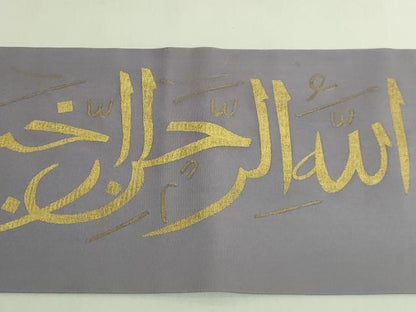 الله الرحمن الرحـ